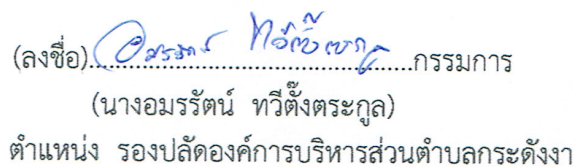 (ลงชื่อ)อมรรัตน์ ทวีตั้งตระกูล กรรมการ
(นางอมรรัตน์ ทวีตั้งตระกูล)
ตำแหน่ง รองปลัดองค์การบริหารส่วนตำบลกระดังงา